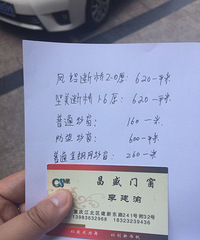 凤铝断桥2.0厚: 620一平米
坚美断桥1.6厚: 620一平米
普通纱窗 160一平米
防盗纱窗 600一平米
普通金钢网纱窗 260一平米
昌盛门窗
李建渝
重庆江北区建新东路241号附32号